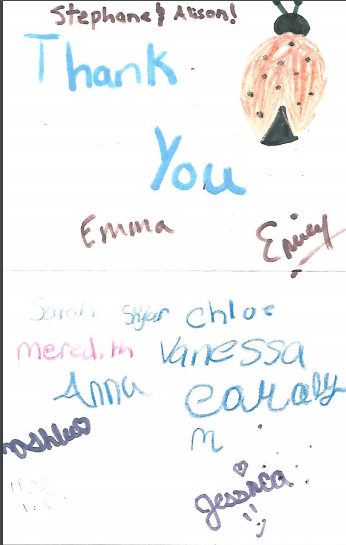 Stephanie & Alison!
Thank
You
Emma Emily
Sarah Skylar Chloe
meredith Vanessa
Anna Caraly
n
Ashlee
Jessica